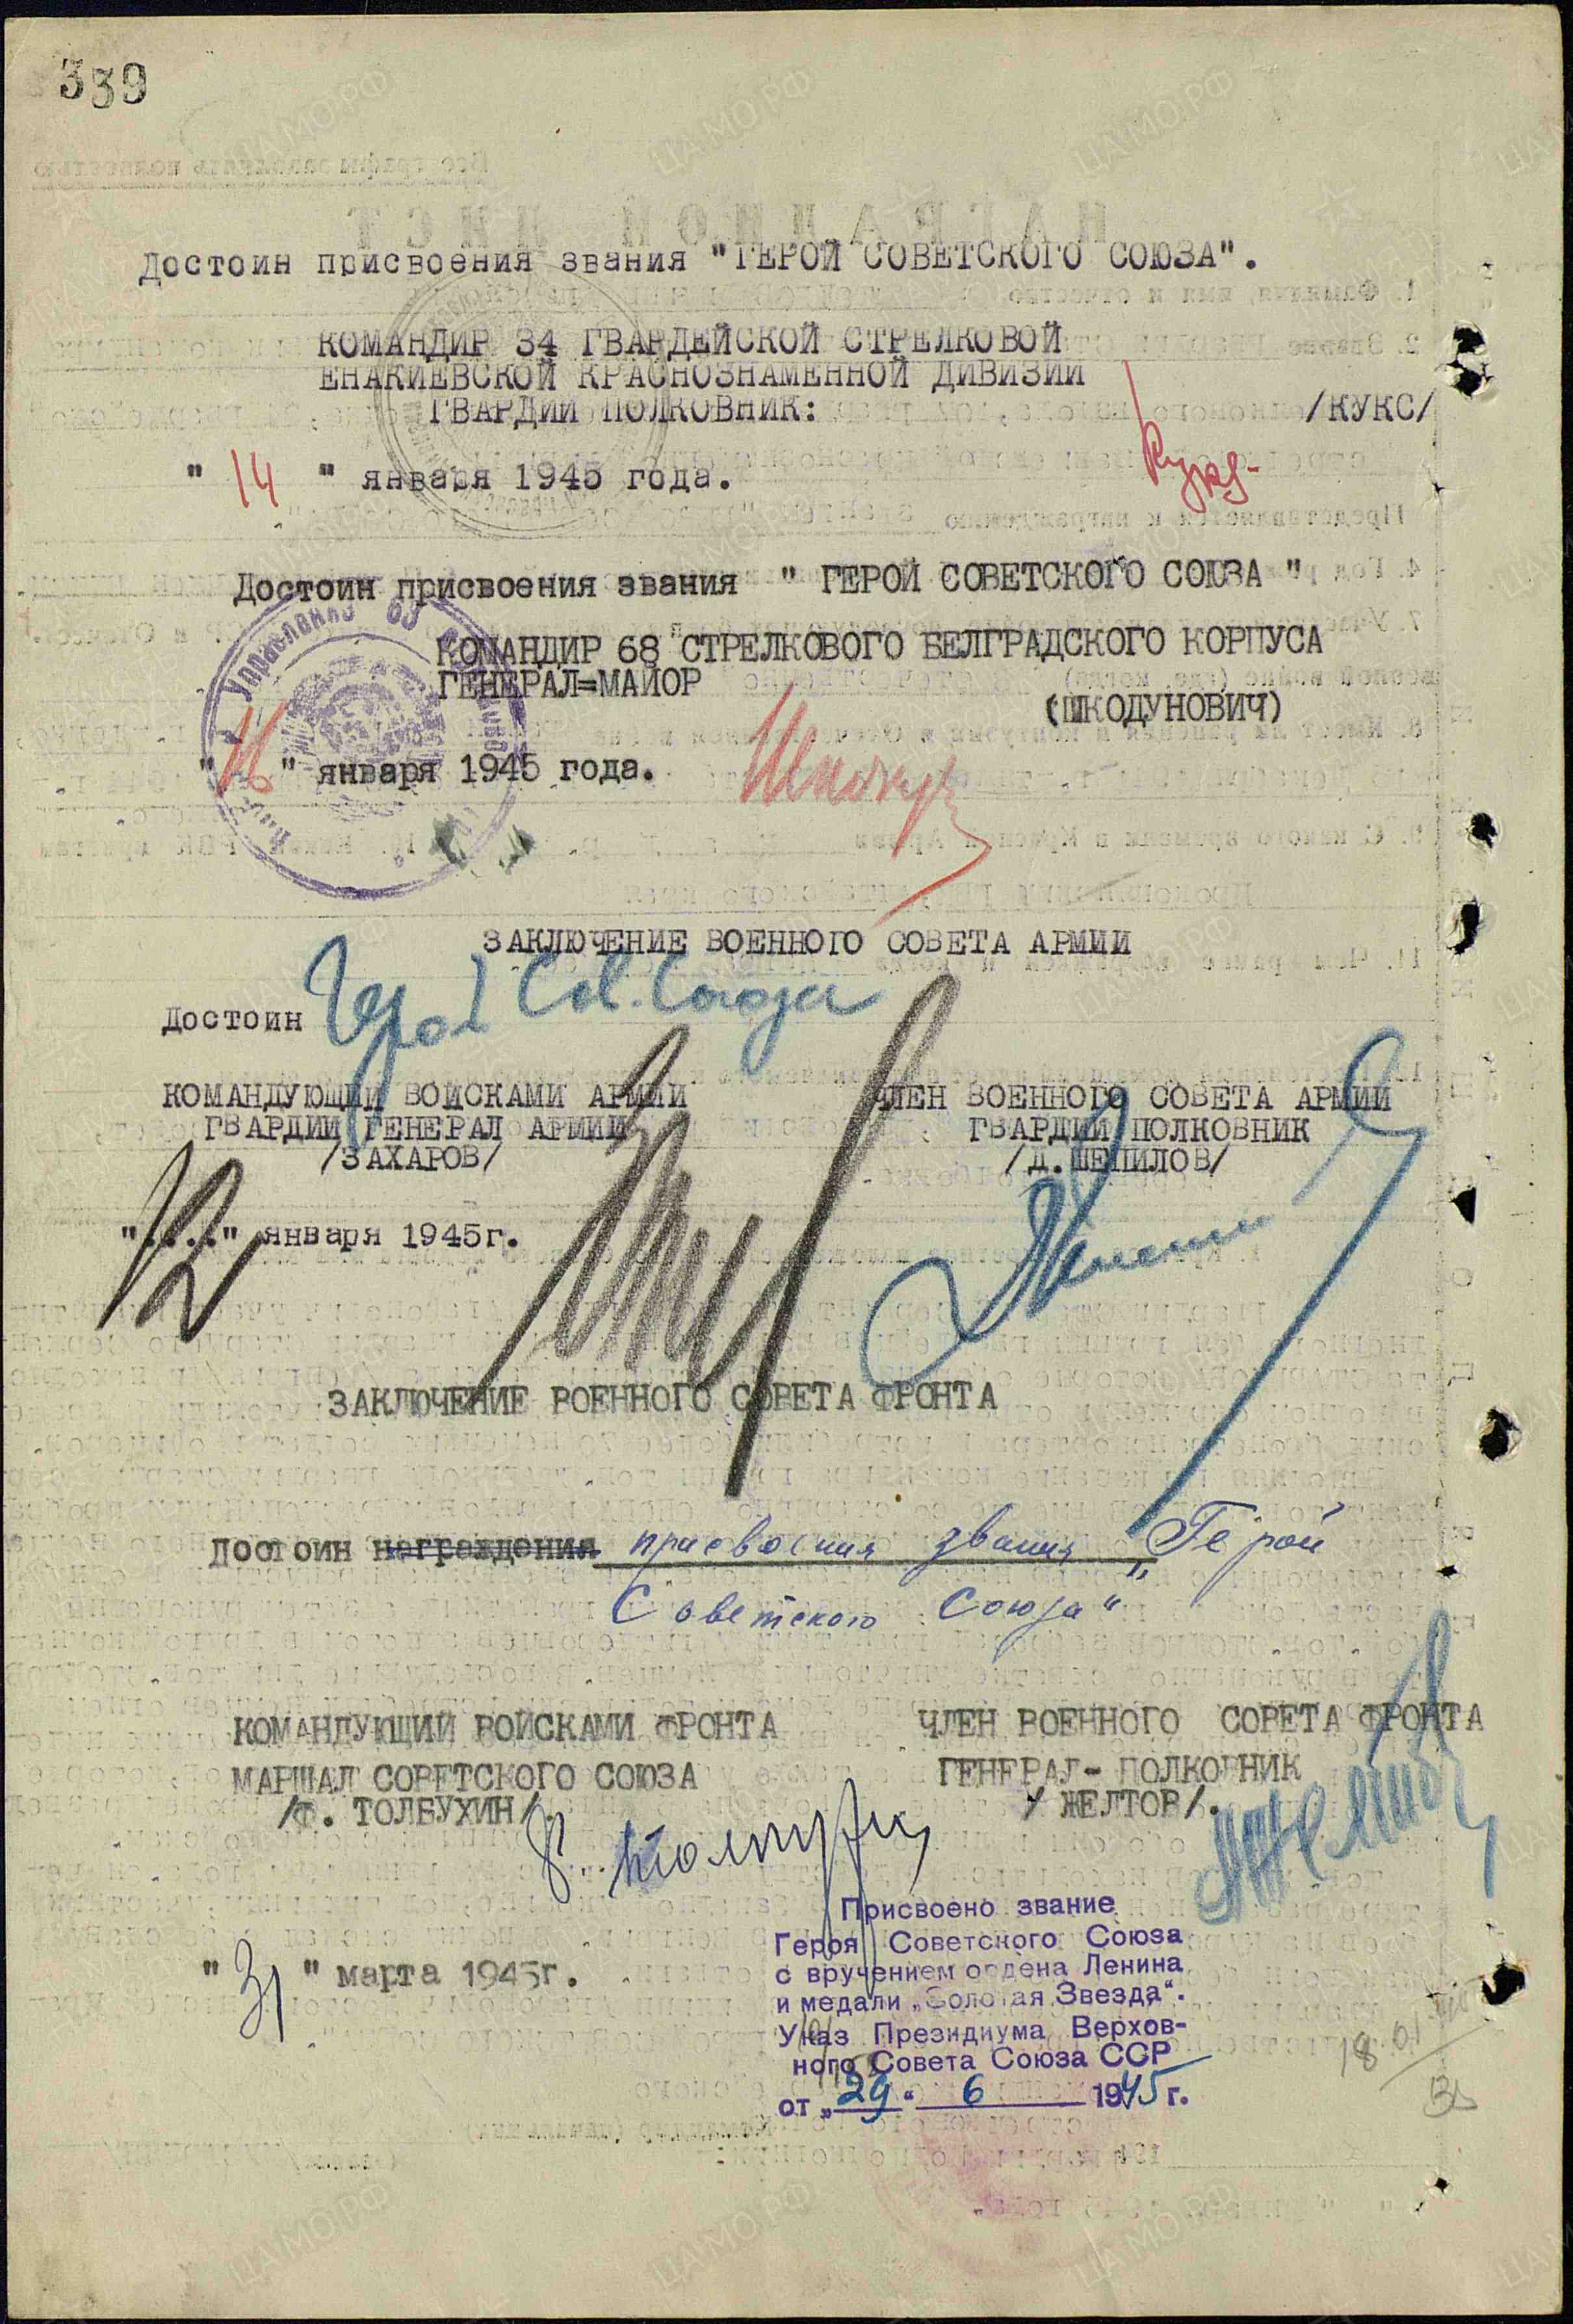 339
Достоин присвоения звания "ГЕРОЙ СОВЕТСКОГО СОЮЗА".
КОМАНДИР 34 ГВАРДЕЙСКОЙ СТРЕЛКОВОЙ
ЕНАКИЕВСКОЙ КРАСНОЗНАМЕННОЙ ДИВИЗИИ
ГВАРДИИ ПОЛКОВНИК: /КУКС/
" 14 " января 1945 года.
Достоин присвоения звания " ГЕРОЙ СОВЕТСКОГО СОЮЗА "
КОМАНДИР 68 СТРЕЛКОВОГО БЕЛГРАДСКОГО КОРПУСА
ГЕНЕРАЛ=МАЙОР
(ШКОДУНОВИЧ)
"16" января 1945 года.
ЗАКЛЮЧЕНИЕ ВОЕННОГО СОВЕТА АРМИИ
Достоин Герой Сов. Союза
КОМАНДУЮЩИЙ ВОЙСКАМИ АРМИИ ЧЛЕН ВОЕННОГО СОВЕТА АРМИИ
ГВАРДИИ ГЕНЕРАЛ АРМИИ ГВАРДИИ ПОЛКОВНИК
/ЗАХАРОВ/ /Д.ШЕПИЛОВ/
"...." января 1945г.
ЗАКЛЮЧЕНИЕ ВОЕННОГО СОВЕТА ФРОНТА
Достоин награждения присвоения звания „Герой
Советского Союза"
КОМАНДУЮЩИЙ ВОЙСКАМИ ФРОНТА ЧЛЕН ВОЕННОГО СОВЕТА ФРОНТА
МАРШАЛ СОВЕТСКОГО СОЮЗА ГЕНЕРАЛ- ПОЛКОВНИК
/Ф. ТОЛБУХИН/. / ЖЕЛТОВ/.
Присвоено звание
Героя Советского Союза
с вручением ордена Ленина
и медали „Золотая Звезда".
Указ Президиума Верхов-
ного Совета Союза ССР
от „29" 6 1945 г.
" 31 " марта 1945г.